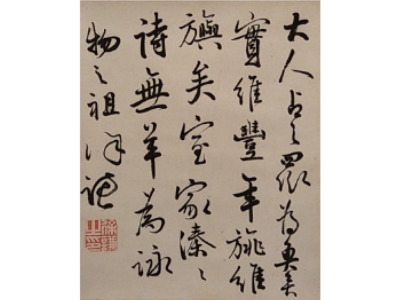 大人占之眾為魚矣
實維豐年旐維
旟矣室家溱〻
詩無羊為詠
物之祖